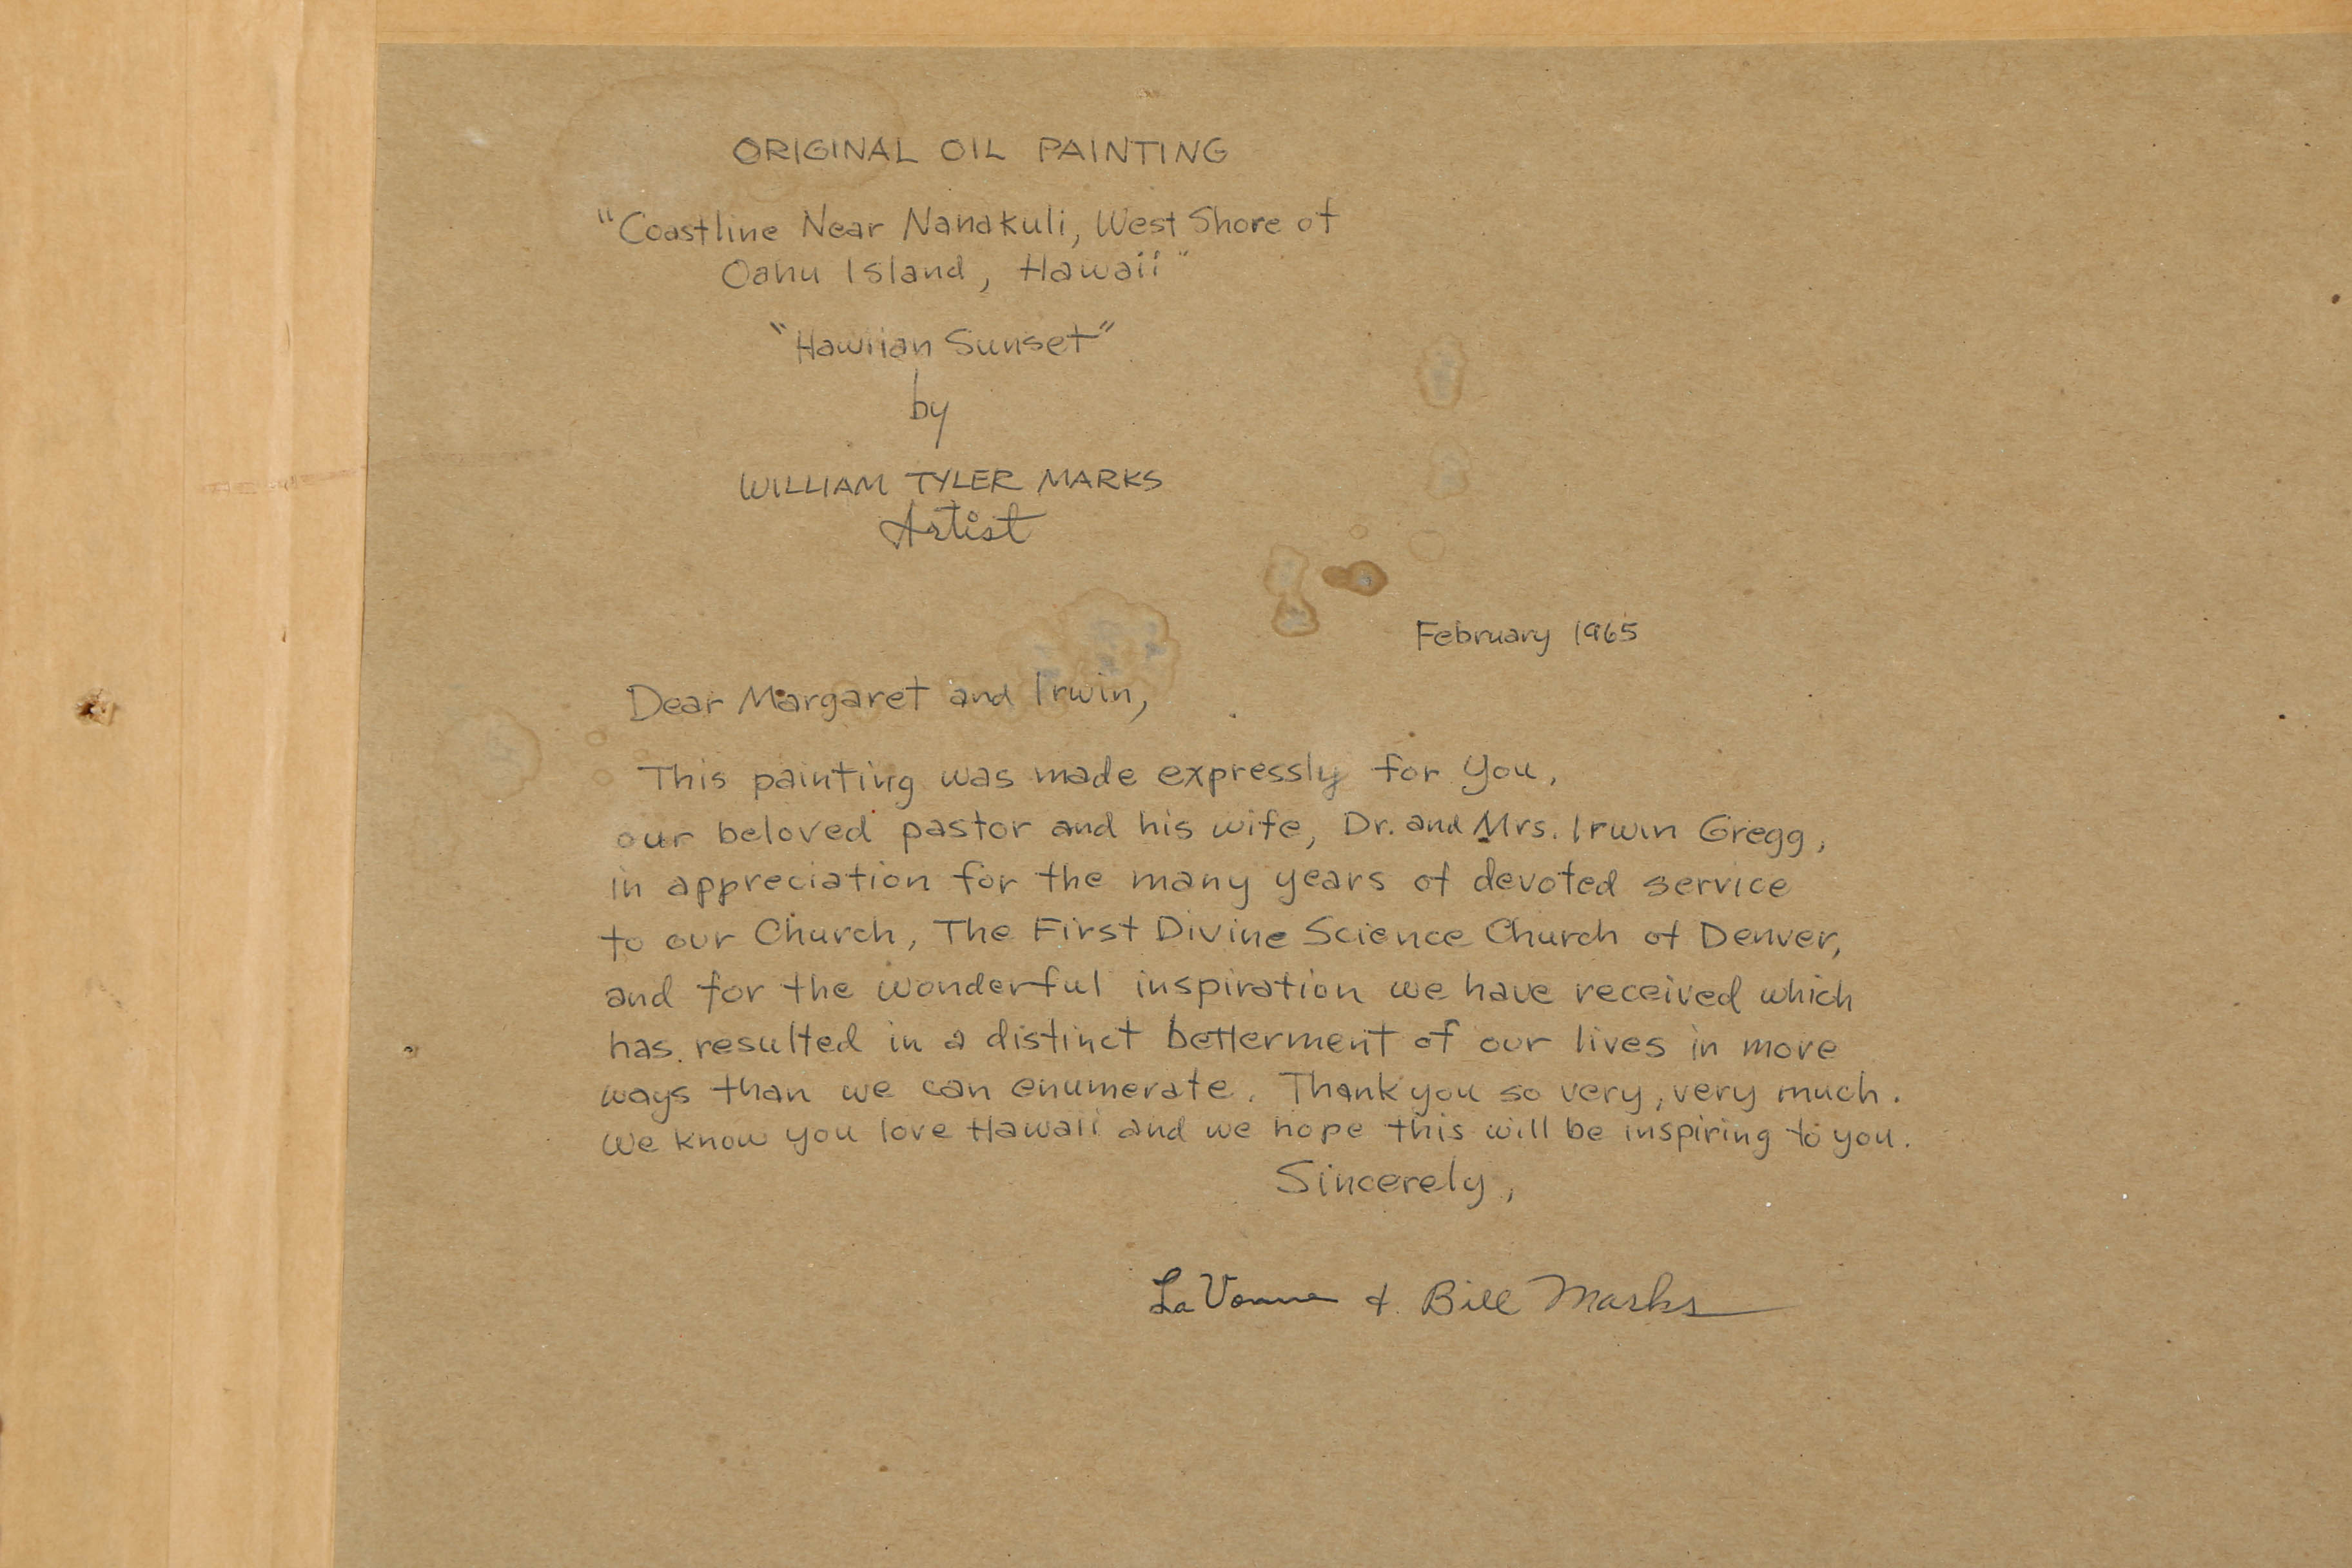 ORIGINAL OIL PAINTING
"Coastline Near Nanakuli, West Shore of
Oahu Island, Hawaii"
"Hawiian Sunset"
by
WILLIAM TYLER MARKS
Artist
February 1965
Dear Margaret and Irwin,
This painting was made expressly for you,
our beloved pastor and his wife, Dr. and Mrs. Irwin Gregg,
in appreciation for the many years of devoted service
to our Church, The First Divine Science Church of Denver,
and for the wonderful inspiration we have received which
has resulted in a distinct betterment of our lives in more
ways than we can enumerate. Thank you so very, very much.
We know you love Hawaii and we hope this will be inspiring to you.
Sincerely,
LaVonne & Bill Marks